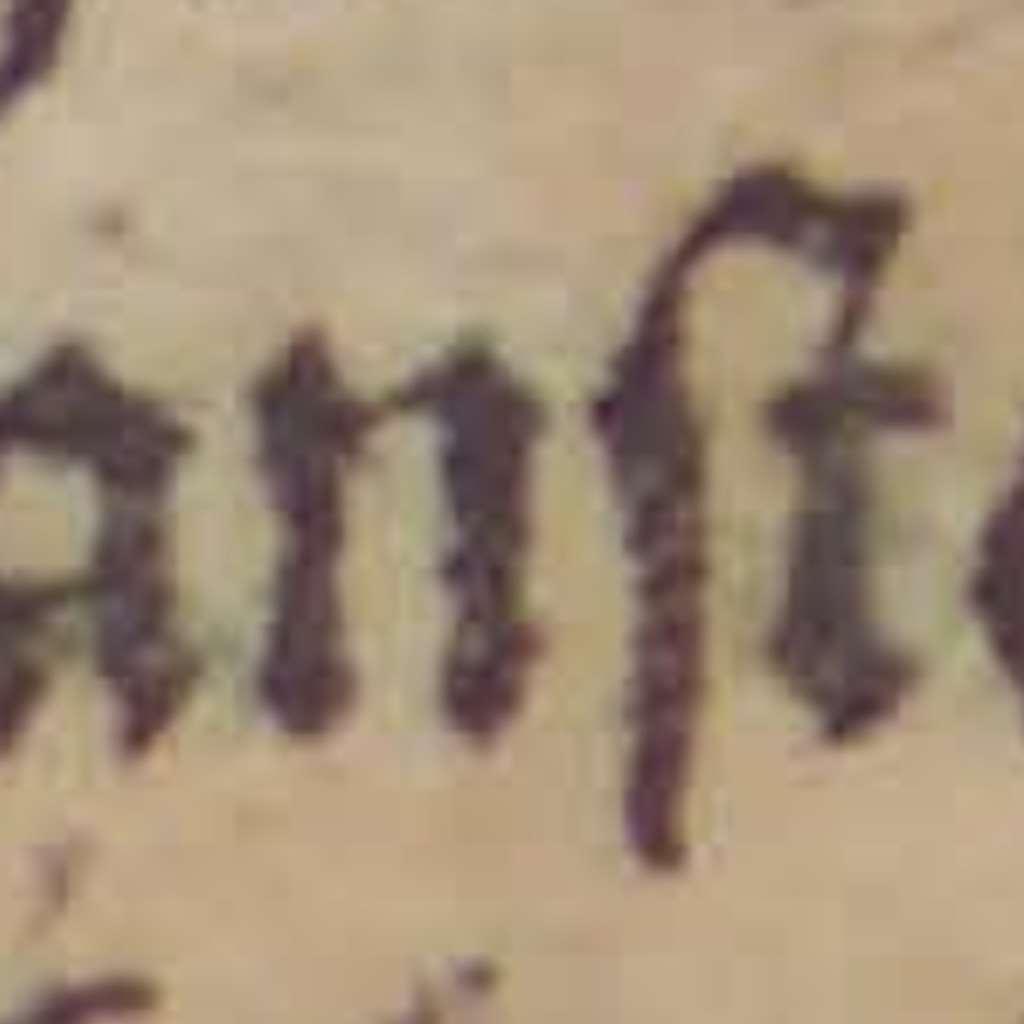 anſt